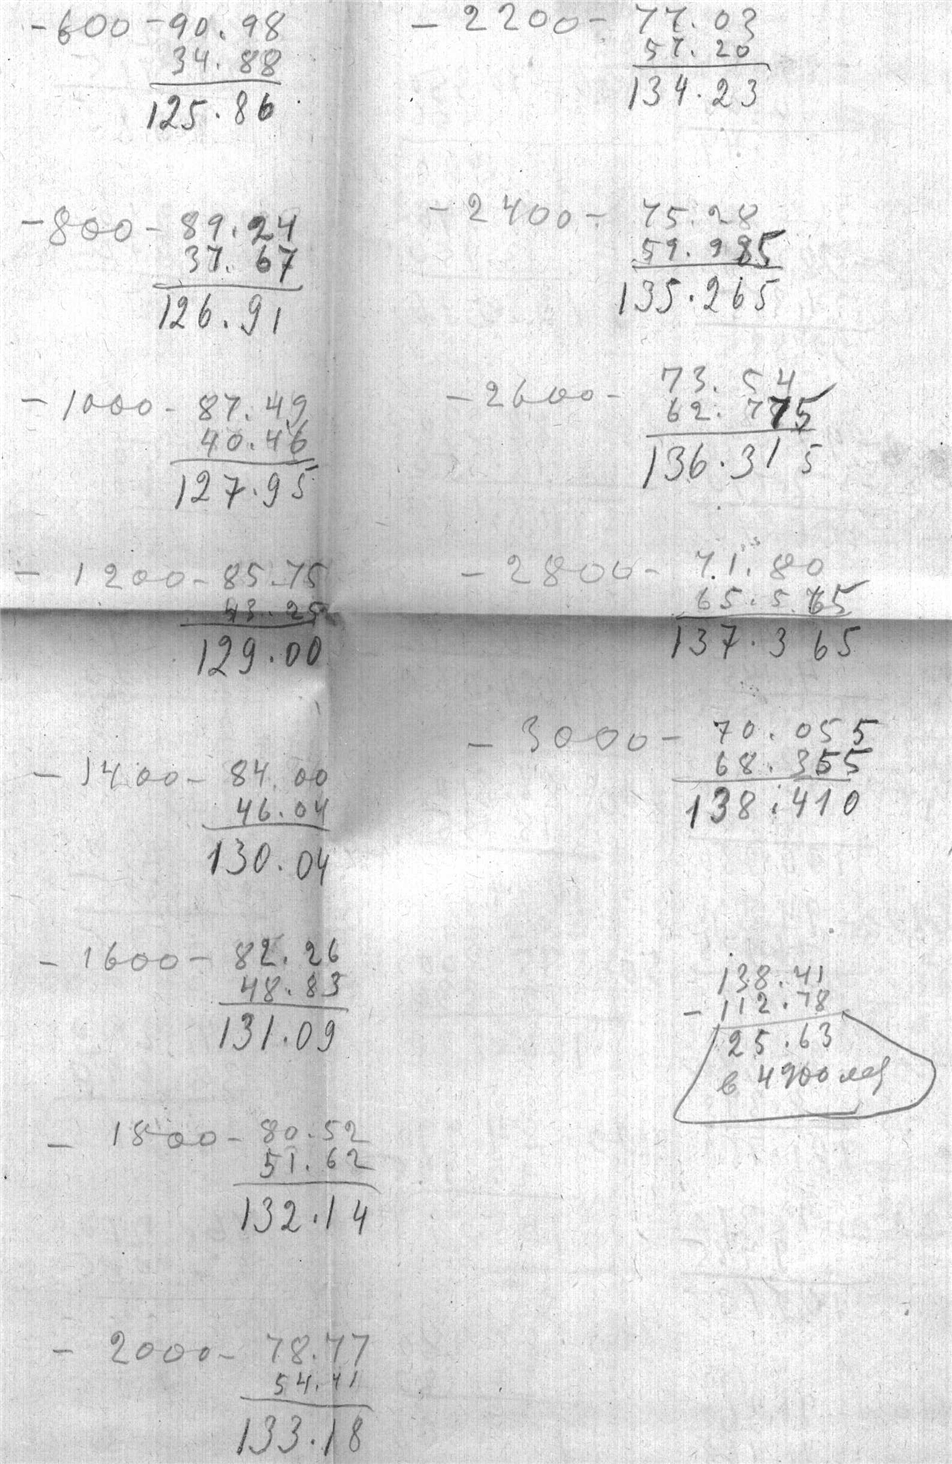 -600-90.98
34.88
125.86
-800-89.24
37.67
126.91
-1000-87.49
40.46
127.95
-1200-85.75
43.25
129.00
-1400-84.00
46.04
130.04
-1600-82.26
48.83
131.09
-1800-80.52
51.62
132.14
-2000-78.77
54.41
133.18
-2200-77.03
57.20
134.23
-2400-75.28
59.985
135.265
-2600-73.54
62.775
136.315
-2800-71.80
65.565
137.365
-3000-70.055
68.355
138.410
138.41
-112.78
25.63
в 4900 лет